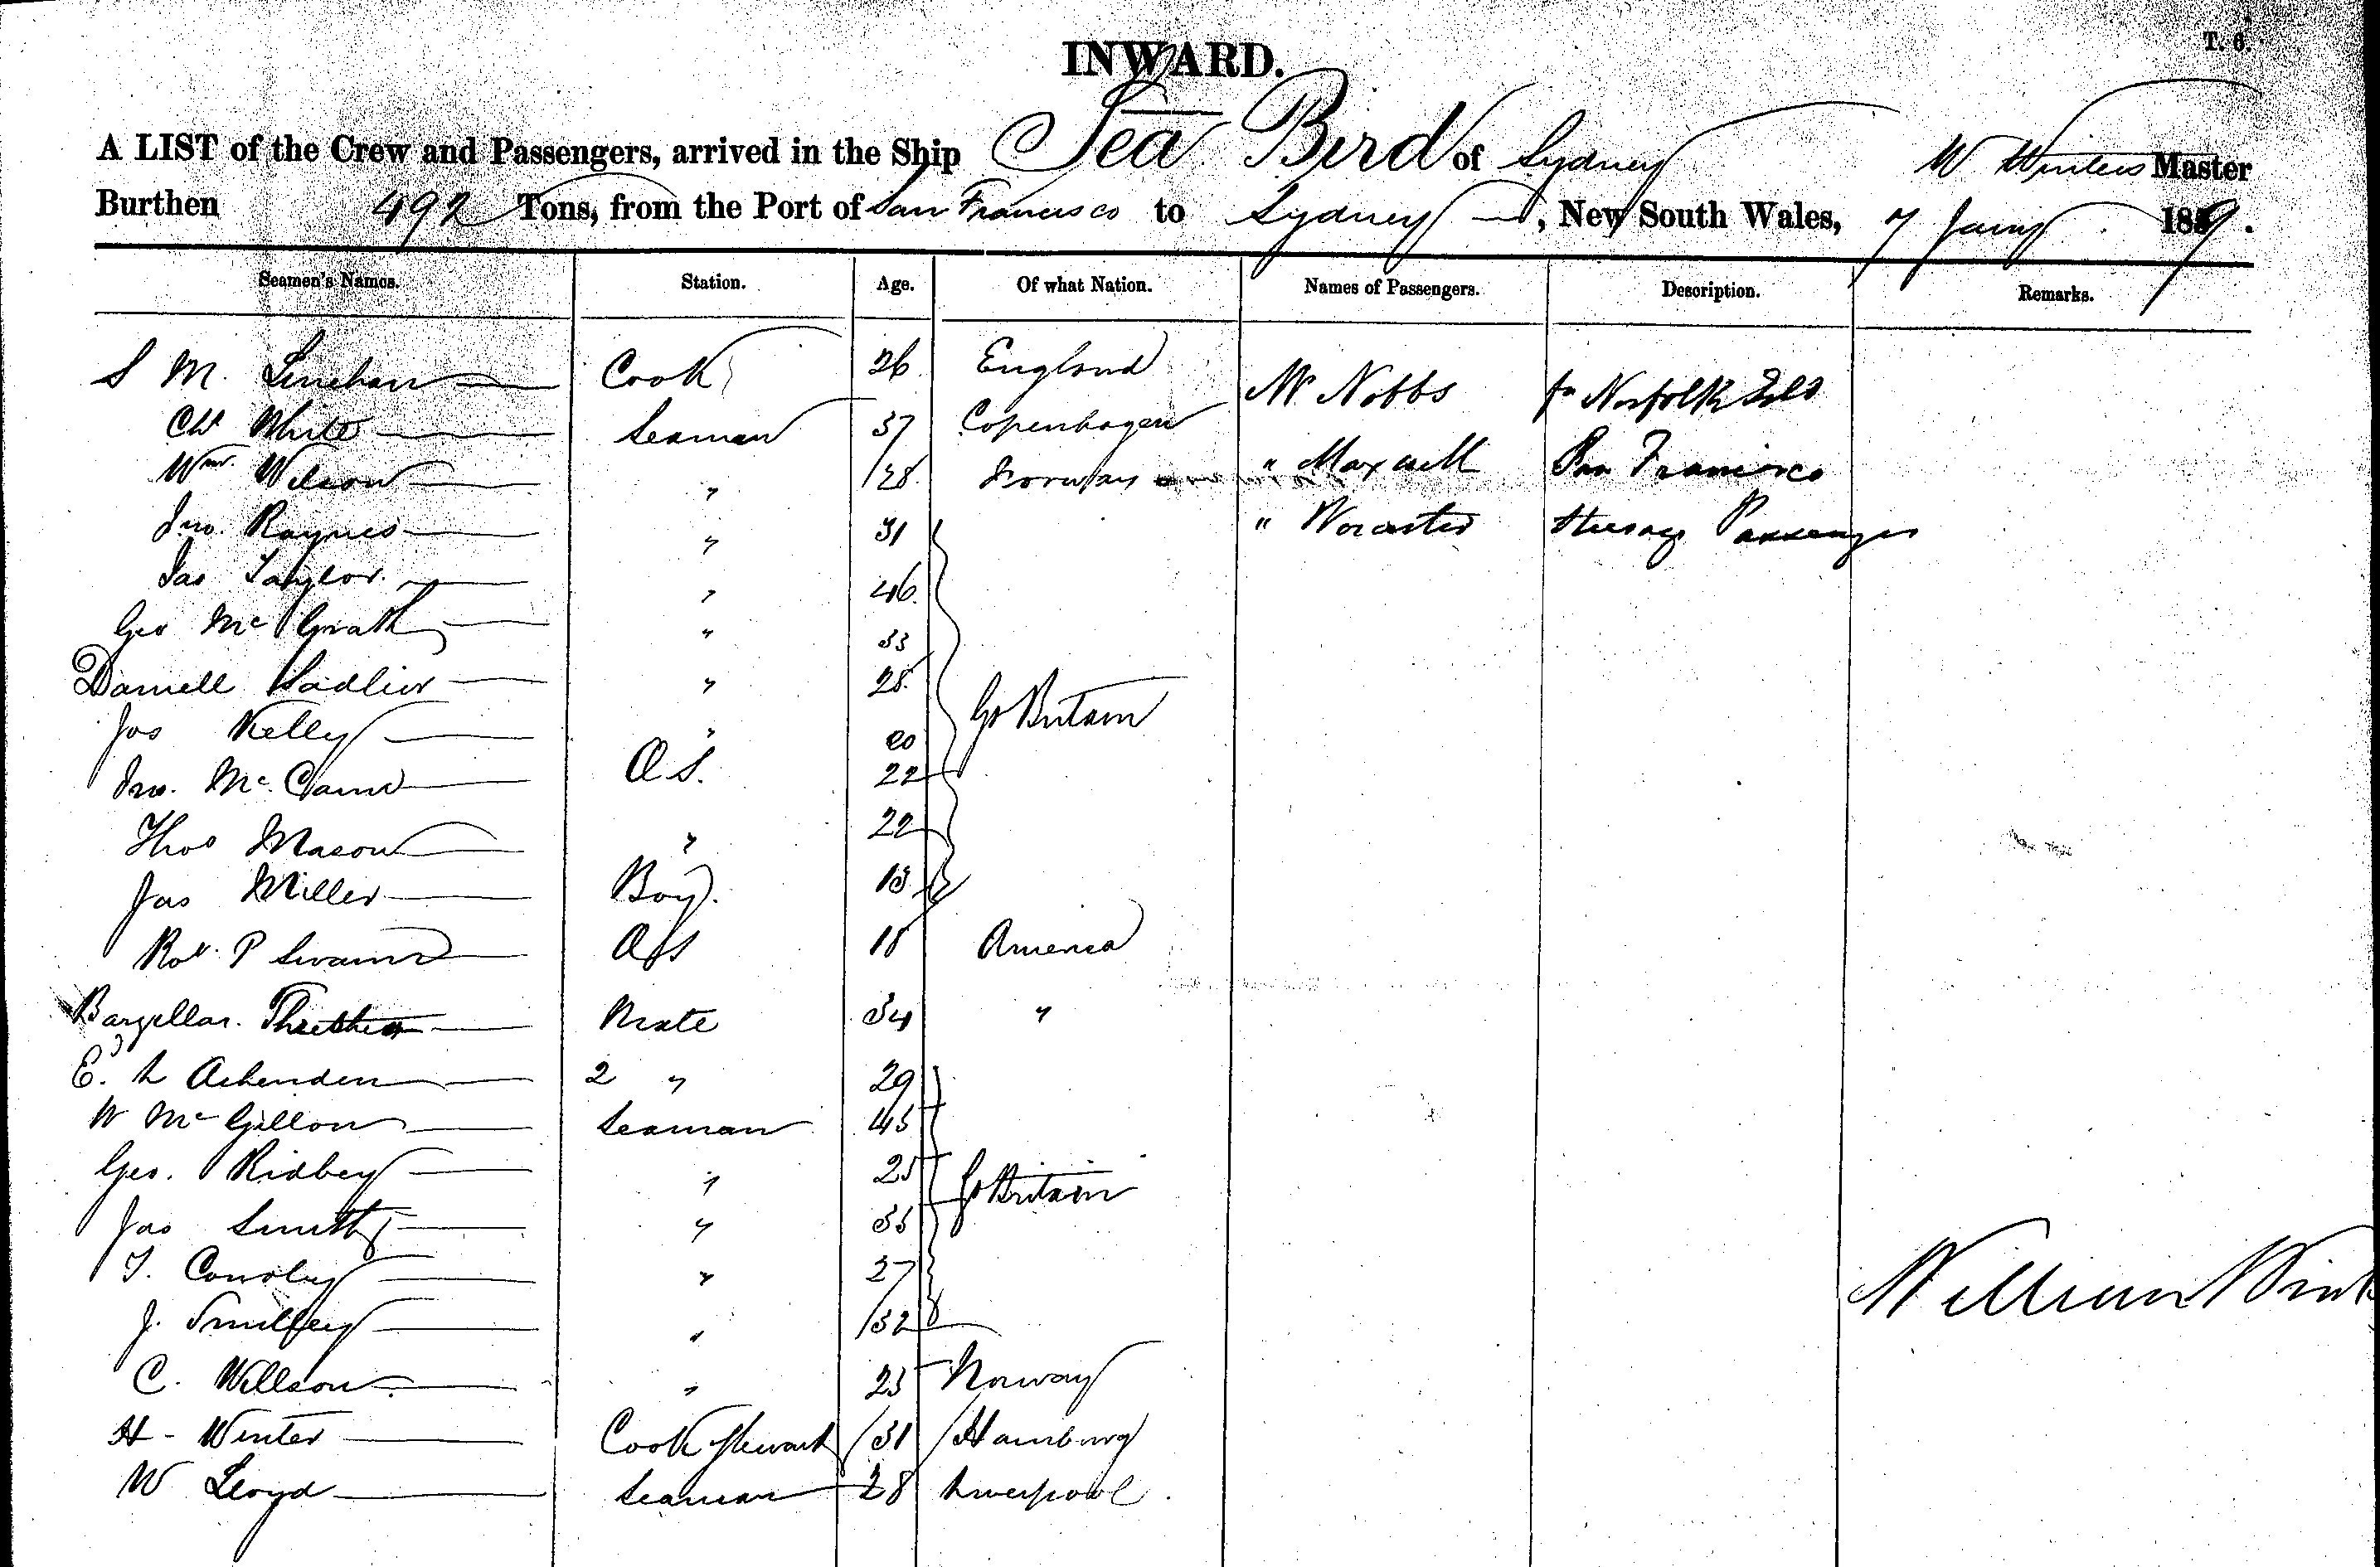 T. 6.
INWARD.
A LIST of the Crew and Passengers, arrived in the Ship Sea Bird of Sydney W Winters Master
Burthen 492 Tons, from the Port of San Francisco to Sydney, New South Wales, 7 Jany 1859.
Seamen's Names. Station. Age. Of what Nation. Names of Passengers. Description. Remarks.
S M. Linehan Cook 26 England Mr Nobbs fr Norfolk Isld
Chs White Seaman 37 Copenhagen
Wm. Wilson " 28 Norway " Maxwell San Francisco
Jno. Raynes " 31 " Worcester Steerage Passenger
Jas Taylor. " 46
Geo McGrath " 33
Daniell Sadlier " 28
Gt Britain
Jas Kelly " 20
Jno. McCann O S. 22
Thos Mason " 22
Jas Miller Boy. 13
Robt. P Swain O S 18 America
Mate 34 "
E. L Achenden 2 " 29
W McGillon Seaman 45
Geo. Ridley " 25 Gt Britain
Jas Smith " 35
T. Conoley " 27
J. Smilley " 32
C. Willson " 23 Norway
H - Winter Cook Steward 31 Hamburg
W Lloyd Seaman 28 Liverpool.
William